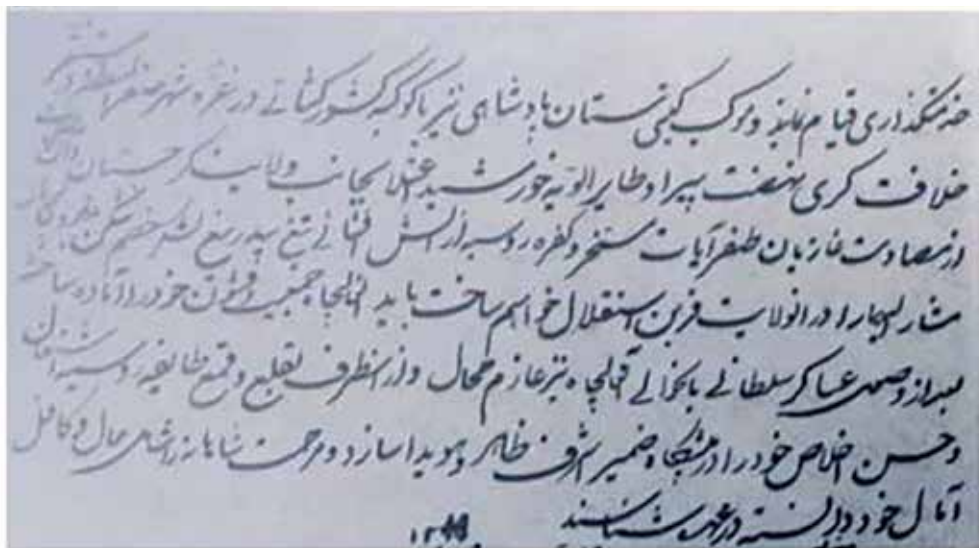 خدمتگذاری قیام نماید و موکب گیتی ستان پادشاهی نیز با کوکبه کشورگشائی در غره شهر صفر المظفر
خلافت کبری نهضت پیرا و طایر الویه خورشید اعتلا بجانب ولایت گرجستان
از مصادمت غازیان ظفر آیات مسخر و کفره روسیه از آتش افشانی تیغ بیدریغ لشکر خصم شکن
مشار الیها را در انولایت قرین استقلال خواهیم ساخت باید آنعالیجاه جمعیت و قشون خود را آماده ساخته
بعد از وصول عساکر سلطانی با نخوالی آنعالیجاه نیز عازم محال و از انطرف بقلع و قمع طایفه روسیه
و حسن اخلاص خود را در پیشگاه ضمیر اشرف ظاهر و هویدا سازد و مرحمت شاهانه را شامل حال و کافل
آمال خود دانسته در عهده شناسند